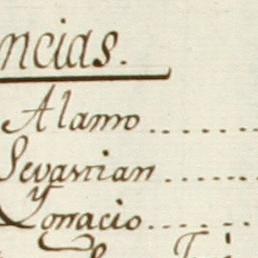 ncias.
Alamo
Sevastian
Ygnacio